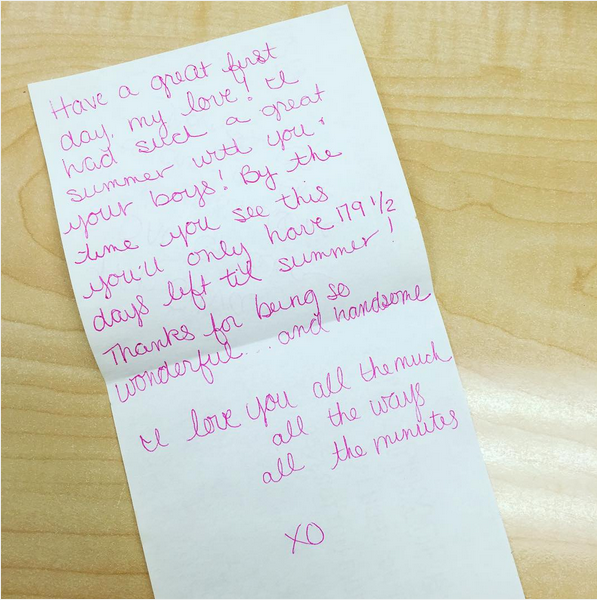 Have a great first
day, my love! I
had such a great
summer with you &
your boys! By the
time you see this
you'll only have 179 1/2
days left til summer!
Thanks for being so
wonderful... and handsome
I love you all the much
all the ways
all the minutes
XO